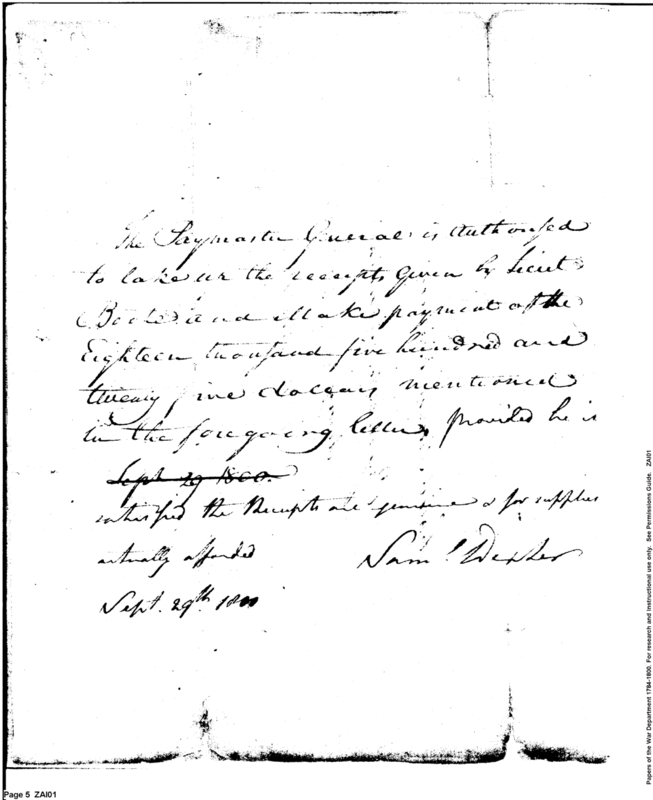 The Paymaster General is Authorised
to take up the receipts given by Lieut
and Make payment of the
Eighteen thousand five hundred and
twenty five dollars mentioned
in the foregoing letter, provided he is
Sept 29 1800.
satisfied the Receipts are genuine & for supplies
actually afforded
Saml. Dexter
Sept. 29th. 1800
Papers of the War Department 1784-1800. For research and instructional use only. See Permissions Guide. ZAI01
Page 5 ZAI01